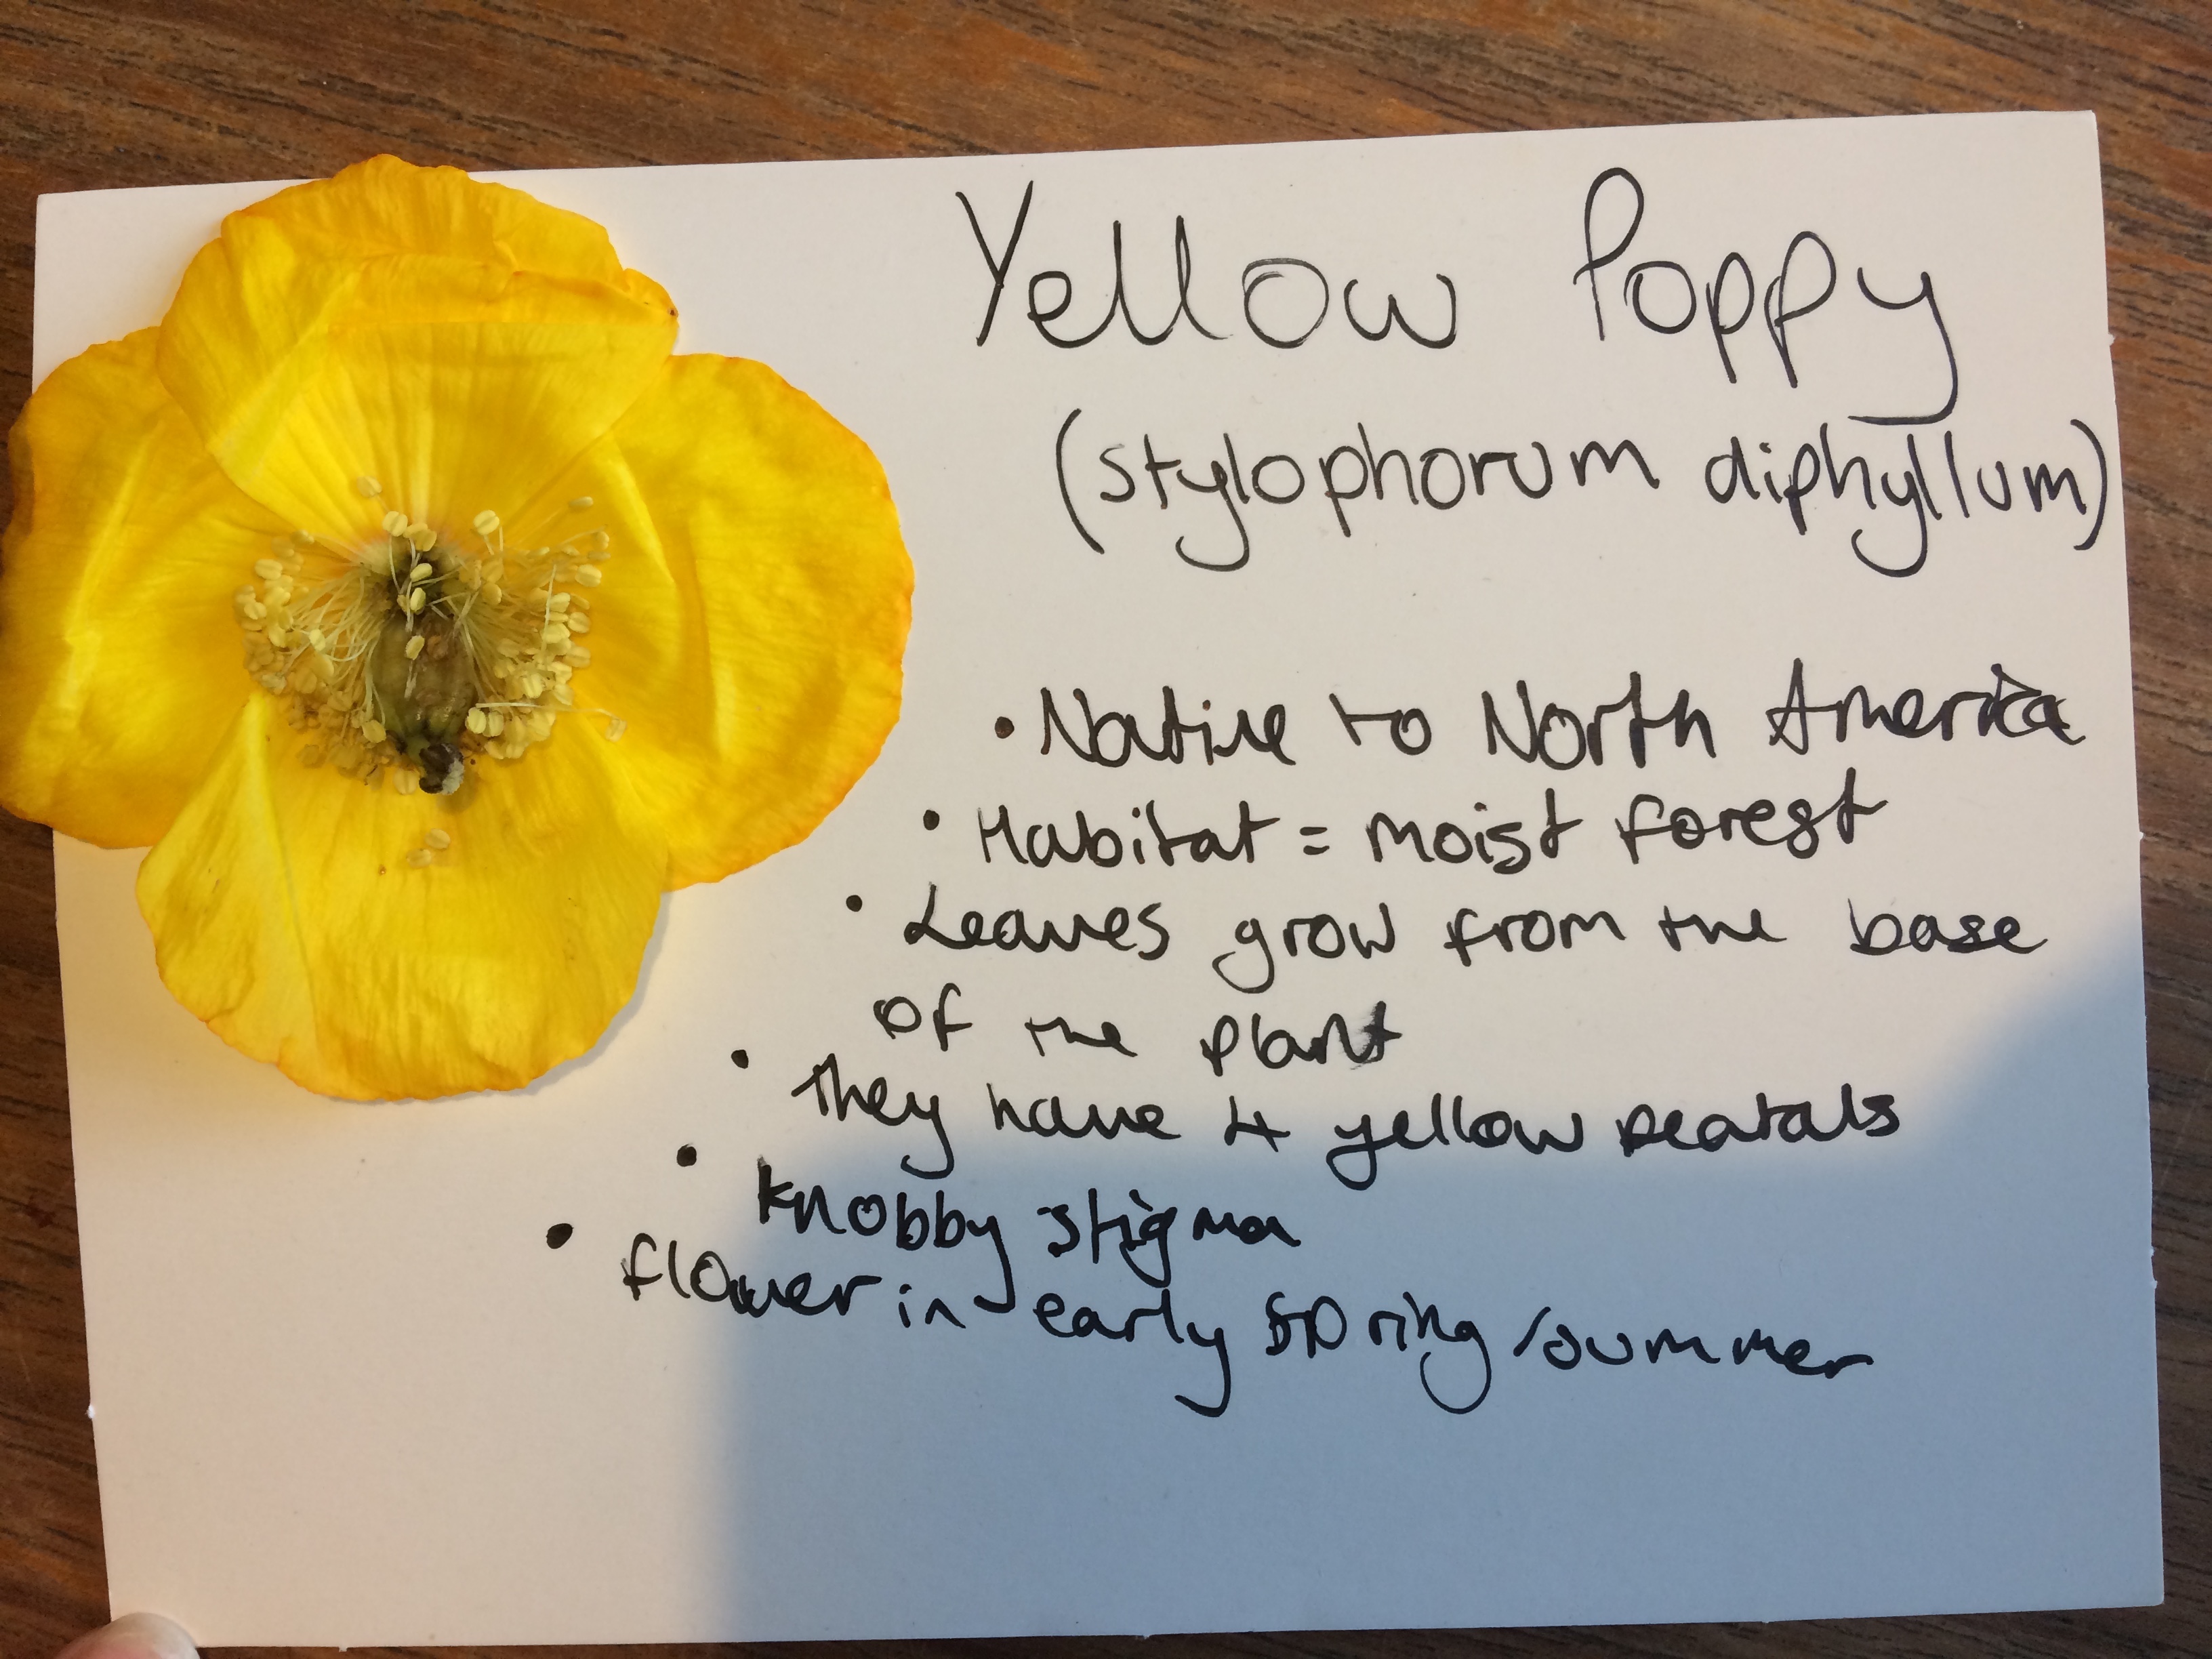 Yellow Poppy
(stylophorum diphyllum)
• Native to North America
• Habitat = moist forest
• Leaves grow from the base
of the plant
• They have 4 yellow peatals
• Knobby stigma
• flower in early spring/summer